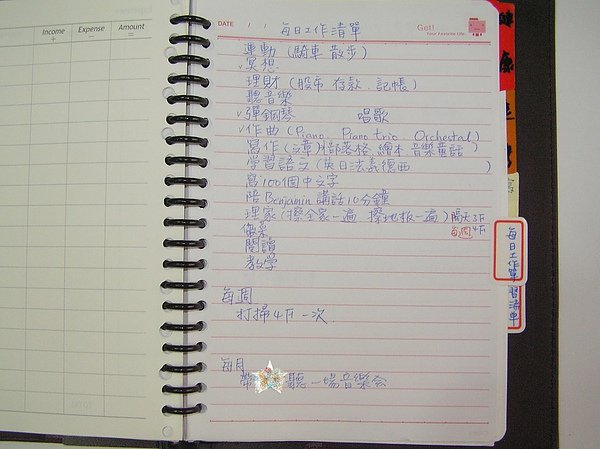 Income
Expense
Amount
+
−
=
DATE / /
每日工作清單
Get!
Your Favorite Life
運動 (騎車 散步)
✓冥想
理財 (股市 存款 記帳)
聽音樂
✓彈鋼琴 唱歌
✓作曲 (Piano. Piano trio. Orchestal)
寫作 (文章 部落格 繪本 音樂童話)
學習語文 (英日法義德西 )
寫100個中文字
陪Benjamin 講話10分鐘
理家 (擦全家一遍 擦地板一遍) 隔天3F
每週4F
做菜
閱讀
教學
每週
打掃4F一次.
每月
帶 聽一場音樂会
健
康
每日工作單
習清單